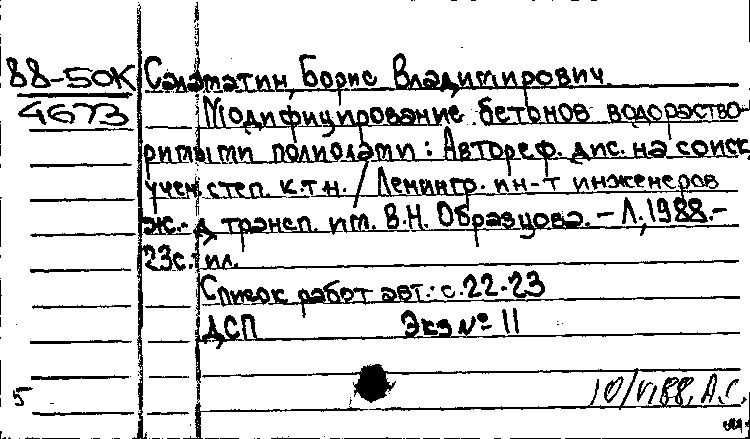 88-50К Саламатин, Борис Владимирович.
4673 Модифицирование бетонов водораство-
римыми полиолами: Автореф. дис. на соиск.
учен. степ. к.т.н. / Ленингр. ин-т инженеров
ж.-д. трансп. им. В.Н. Образцова. – Л., 1988.–
23с.: ил.
Список работ авт.: с.22-23
ДСП Экз № 11
5 10/VI88, А.С.